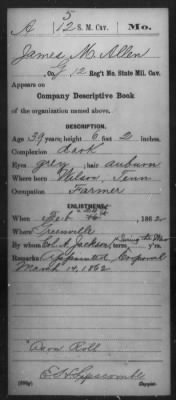 A 5/12 S. M. Cav. Mo.
James M. Allen
, Co. G, 12 Reg't Mo. State Mil. Cav.
Appears on
Company Descriptive Book
of the organization named above.
DESCRIPTION.
Age 39 years; height 6 feet 2 inches.
Complexion dark
Eyes grey; hair auburn
Where born Wilson, Tenn
Occupation Farmer
ENLISTMENT.
When Feb 1862
Where Greenville
By whom Col. A. Jackson; term During the War y'rs.
Remarks Appointed Corporal
March 14, 1862
Roll
E. H. Lipscomb
Copyist.